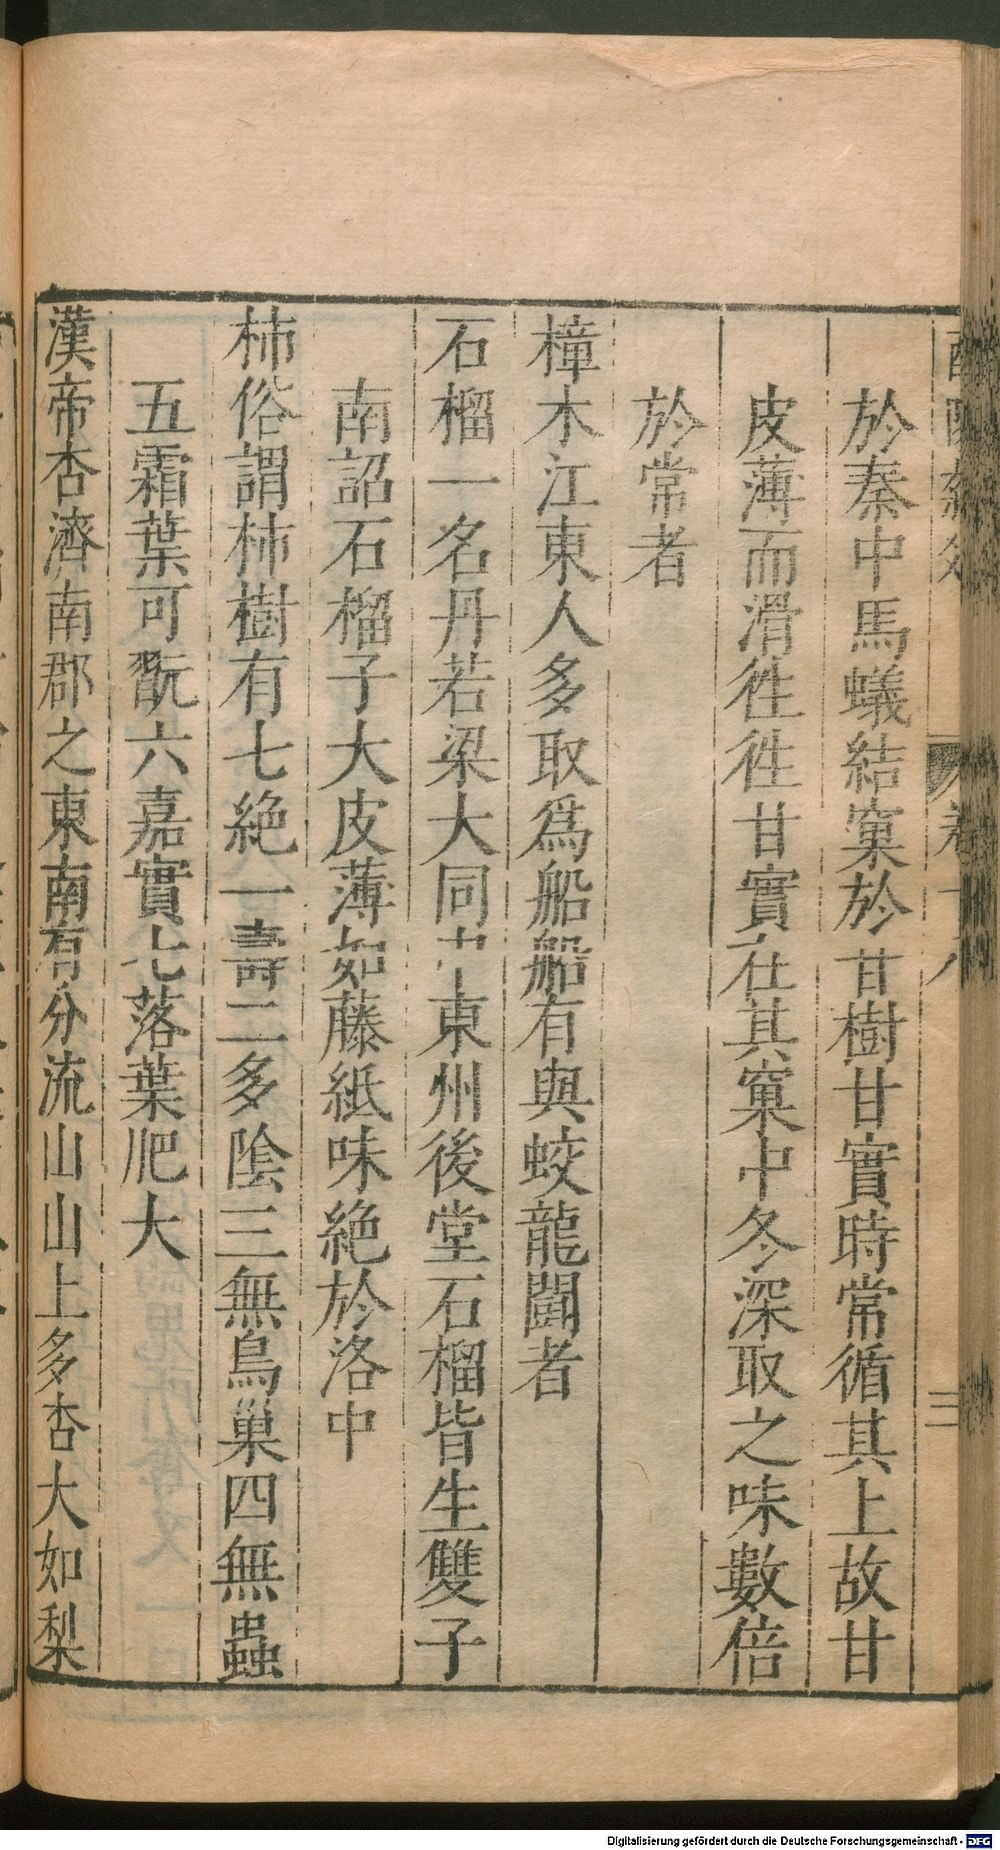 於秦中馬蟻結窠於甘樹甘實時常循其上故甘
皮薄而滑徃徃甘實在其窠中冬深取之味數倍
於常者
樟木江東人多取爲船船有與蛟龍鬪者
石榴一名丹若梁大同中東州後堂石榴皆生雙子
南詔石榴子大皮薄如藤紙味絶於洛中
柿俗謂柿樹有七絶一壽二多陰三無鳥巢四無蟲
五霜葉可翫六嘉實七落葉肥大
漢帝杏濟南郡之東南有分流山山上多杏大如梨
三
Digitalisierung gefördert durch die Deutsche Forschungsgemeinschaft - DFG